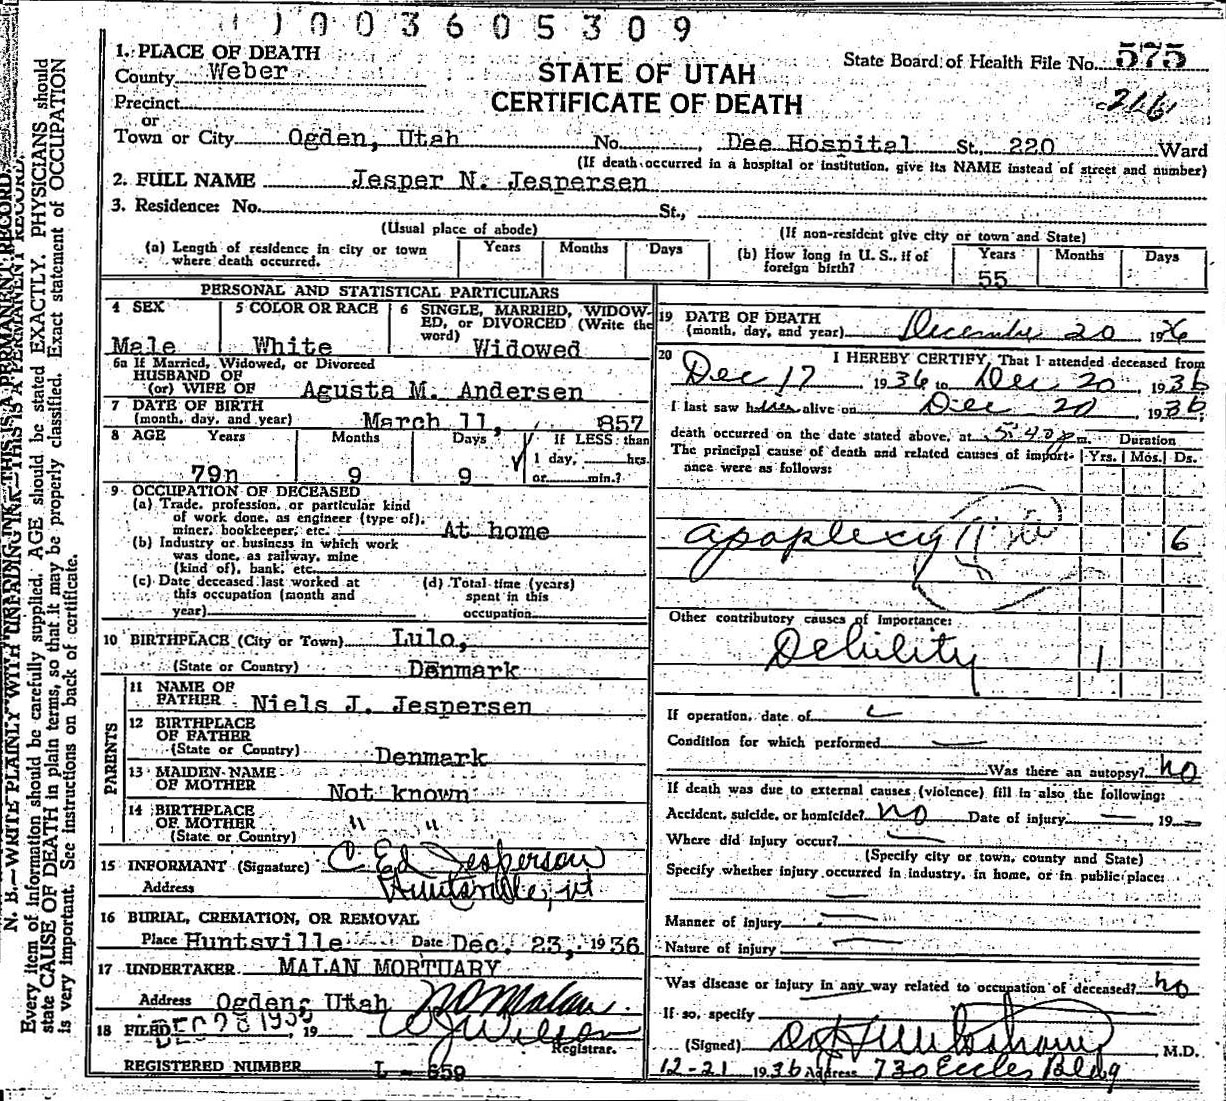 1003605309
1. PLACE OF DEATH
County Weber
STATE OF UTAH
CERTIFICATE OF DEATH
State Board of Health File No. 575
Precinct
or
Town or City Ogden, Utah No. , Dee Hospital St., 220 Ward
(If death occurred in a hospital or institution, give its NAME instead of street and number)
2. FULL NAME Jesper N. Jespersen
3. Residence: No. St.,
(Usual place of abode) (If non-resident give city or town and State)
(a) Length of residence in city or town where death occurred. Years Months Days
(b) How long in U. S., if of foreign birth? Years 55 Months Days
PERSONAL AND STATISTICAL PARTICULARS
4 SEX Male
5 COLOR OR RACE White
6 SINGLE, MARRIED, WIDOWED, or DIVORCED (Write the word) Widowed
6a If Married, Widowed, or Divorced
HUSBAND OF
(or) WIFE OF Agusta M. Andersen
7 DATE OF BIRTH
(month, day, and year) March 11, 857
8 AGE Years 79n Months 9 Days 9 If LESS than
1 day, hrs.
or min.?
9 OCCUPATION OF DECEASED
(a) Trade, profession, or particular kind
of work done, as engineer (type of),
miner, bookkeeper, etc. At home
(b) Industry or business in which work
was done, as railway, mine
(kind of), bank, etc.
(c) Date deceased last worked at
this occupation (month and
year)
(d) Total time (years)
spent in this
occupation
10 BIRTHPLACE (City or Town) Lulo,
(State or Country) Denmark
PARENTS
11 NAME OF
FATHER Niels J. Jespersen
12 BIRTHPLACE
OF FATHER
(State or Country) Denmark
13 MAIDEN NAME
OF MOTHER Not known
14 BIRTHPLACE
OF MOTHER
(State or Country) " "
15 INFORMANT (Signature) C Ed Jesperson
Address Huntsville, ut
16 BURIAL, CREMATION, OR REMOVAL
Place Huntsville Date Dec. 23, 1936
17 UNDERTAKER MALAN MORTUARY
Address Ogden, Utah
18 FILED DEC 28 193 19
Registrar.
REGISTERED NUMBER L - 659
19 DATE OF DEATH
(month, day, and year) December 20 1936
20 I HEREBY CERTIFY, That I attended deceased from
Dec 17 1936 to Dec 20 1936
I last saw h alive on Dec 20 1936
death occurred on the date stated above, at 5:40 p m. Duration
The principal cause of death and related causes of importance were as follows: Yrs. Mos. Ds.
apoplexy 6
Other contributory causes of importance:
Debility 1
If operation, date of
Condition for which performed
Was there an autopsy? no
If death was due to external causes (violence) fill in also the following:
Accident, suicide, or homicide? no Date of injury — 19—
Where did injury occur? —
(Specify city or town, county and State)
Specify whether injury occurred in industry, in home, or in public place:
—
Manner of injury —
Nature of injury —
Was disease or injury in any way related to occupation of deceased? no
If so, specify
(Signed) , M.D.
12-21 1936 Address 730 Eccles Bldg
N. B.—WRITE PLAINLY WITH UNFADING INK—THIS IS A PERMANENT RECORD.
Every item of information should be carefully supplied. AGE should be stated EXACTLY. PHYSICIANS should
state CAUSE OF DEATH in plain terms, so that it may be properly classified. Exact statement of OCCUPATION
is very important. See instructions on back of certificate.